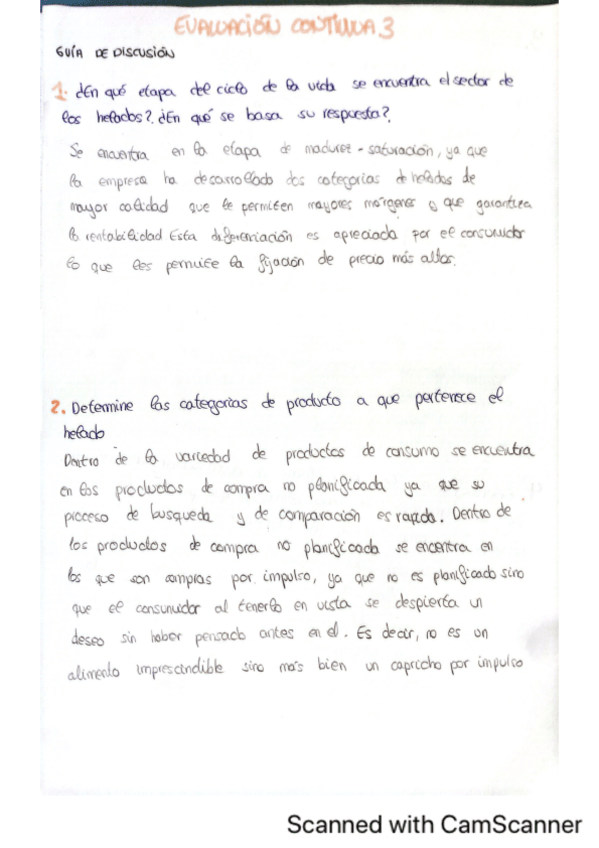 EVALUACIÓN CONTINUA 3
GUÍA DE DISCUSIÓN
1. ¿En qué etapa del ciclo de la vida se encuentra el sector de
los helados?. ¿En qué se basa su respuesta?.
Se encuentra en la etapa de madurez - saturación, ya que
la empresa ha desarrollado dos categorias de helados de
mayor calidad que le permiten mayores márgenes o que garantiza
la rentabilidad Esta diferenciación es apreciada por el consumidor
lo que les permite la fijación de precio más altos.
2. Determine las categorias de producto a que pertenece el
helado
Dentro de la variedad de productos de consumo se encuentra
en los productos de compra no planificada ya que su
proceso de busqueda y de comparación es rapida. Dentro de
los productos de compra no planificada se encentra en
los que son compras por impulso, ya que no es planificado sino
que el consumidor al tenerlo en vista se despierta un
deseo sin haber pensado antes en el. Es decir, no es un
alimento imprescindible sino más bien un capricho por impulso
Scanned with CamScanner